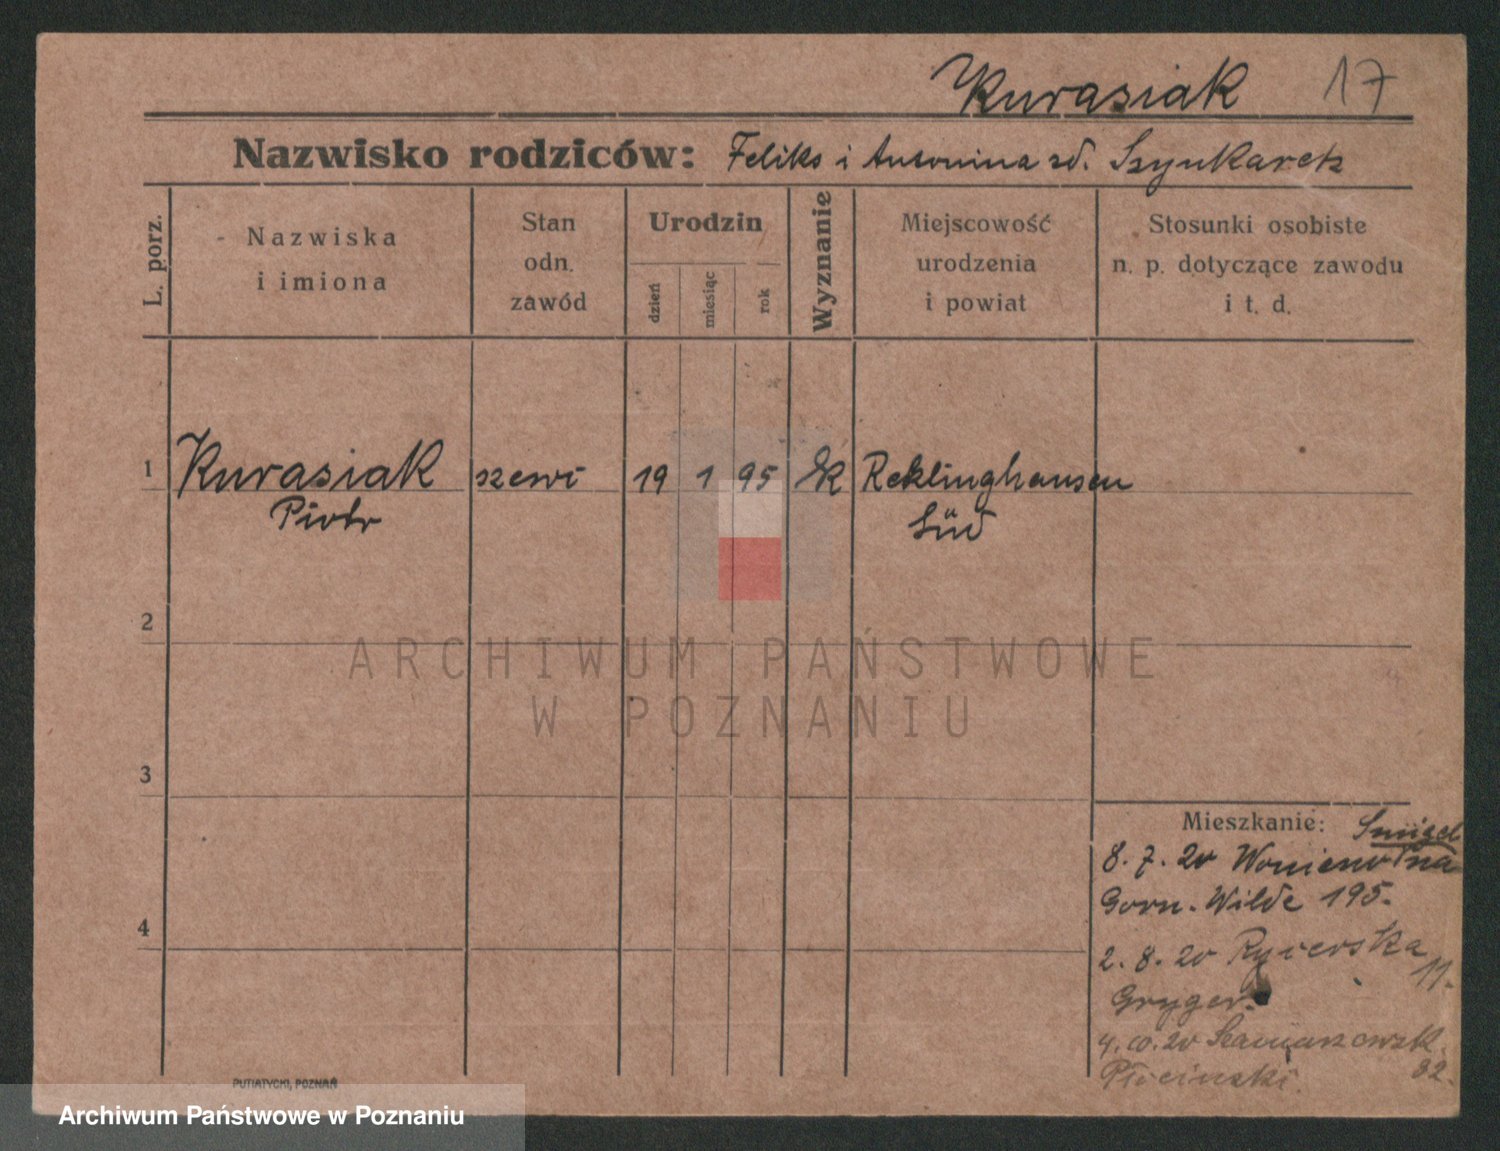 Kurasiak 17
Nazwisko rodziców: Feliks i Antonina zd. Szynkarek
L. porz.
Nazwiska
i imiona
Stan
odn.
zawód
Urodzin
dzień
miesiąc
rok
Wyznanie
Miejscowość
urodzenia
i powiat
Stosunki osobiste
n. p. dotyczące zawodu
i t. d.
1 Kurasiak szewc 19 1 95 rk Reklinghausen
Piotr Süd
2
ARCHIWUM PAŃSTWOWE
W POZNANIU
3
Mieszkanie: Śmigel
8. 7. 20
Gorn. Wilde 195.
4
2. 8. 20 Rycerska
11.
Gryger.
4. 10. 20
Płociński. 32.
PUTIATYCKI, POZNAŃ
Archiwum Państwowe w Poznaniu